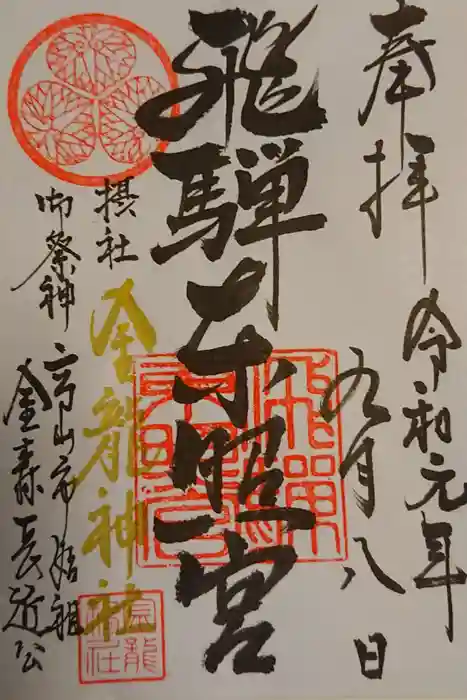 奉拝
令和元年
九月八日
飛騨東照宮
摂社
金龍神社
御祭神
高山市始祖
金森長近公
飛騨東照宮
金龍神社